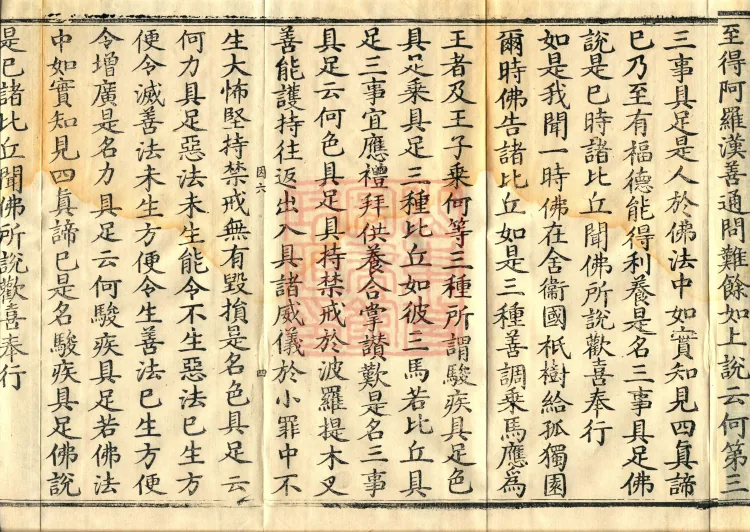 至得阿羅漢善通問難餘如上說云何第三
三事具足是人於佛法中如實知見四真諦
已乃至有福德能得利養是名三事具足佛
說是已時諸比丘聞佛所說歡喜奉行
如是我聞一時佛在舍衞國祇樹給孤獨園
爾時佛告諸比丘如是三種善調乘馬應為
王者及王子乘何等三種所謂駿疾具足色
具足乘具足三種比丘如彼三馬若比丘具
足三事宜應禮拜供養合掌讃歎是名三事
具足云何色具足具持禁戒於波羅提木叉
善能護持往返出入具諸威儀於小罪中不
因六 四
生大怖堅持禁戒無有毀損是名色具足云
何力具足惡法未生能令不生惡法已生方
便令滅善法未生方便令生善法已生方便
令增廣是名力具足云何駿疾具足若佛法
中如實知見四真諦已是名駿疾具足佛說
是已諸比丘聞佛所說歡喜奉行